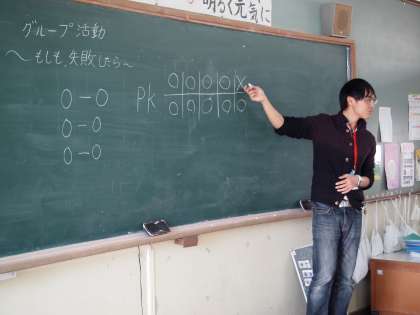 明るく元気に
グループ活動
～もしも、失敗したら～
0-0
0-0
0-0
PK
○○○○×
○○○○○